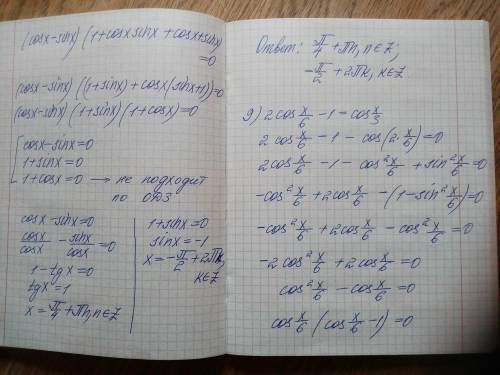 (cosx-sinx)(1+cosx sinx+cosx+sinx)
=0
(cosx-sinx)((1+sinx)+cosx(sinx+1))=0
(cosx-sinx)(1+sinx)(1+cosx)=0
[cosx-sinx=0
1+sinx=0
1+cosx=0 → не подходит
по ОДЗ
cosx-sinx=0
cosx/cosx - sinx/cosx =0
1-tgx=0
tgx=1
x=π/4+πn, n∈Z
1+sinx=0
sinx=-1
x=-π/2+2πk,
k∈Z
Ответ: π/4+πn, n∈Z;
-π/2+2πk, k∈Z
9) 2cos x/6 -1-cos x/3
2cos x/6 -1-cos(2·x/6)=0
2cos x/6 -1-cos² x/6 + sin² x/6=0
-cos² x/6 +2cos x/6 -(1-sin² x/6)=0
-cos² x/6 +2cos x/6 -cos² x/6=0
-2cos² x/6 +2cos x/6=0
cos² x/6 -cos x/6=0
cos x/6 (cos x/6 -1)=0